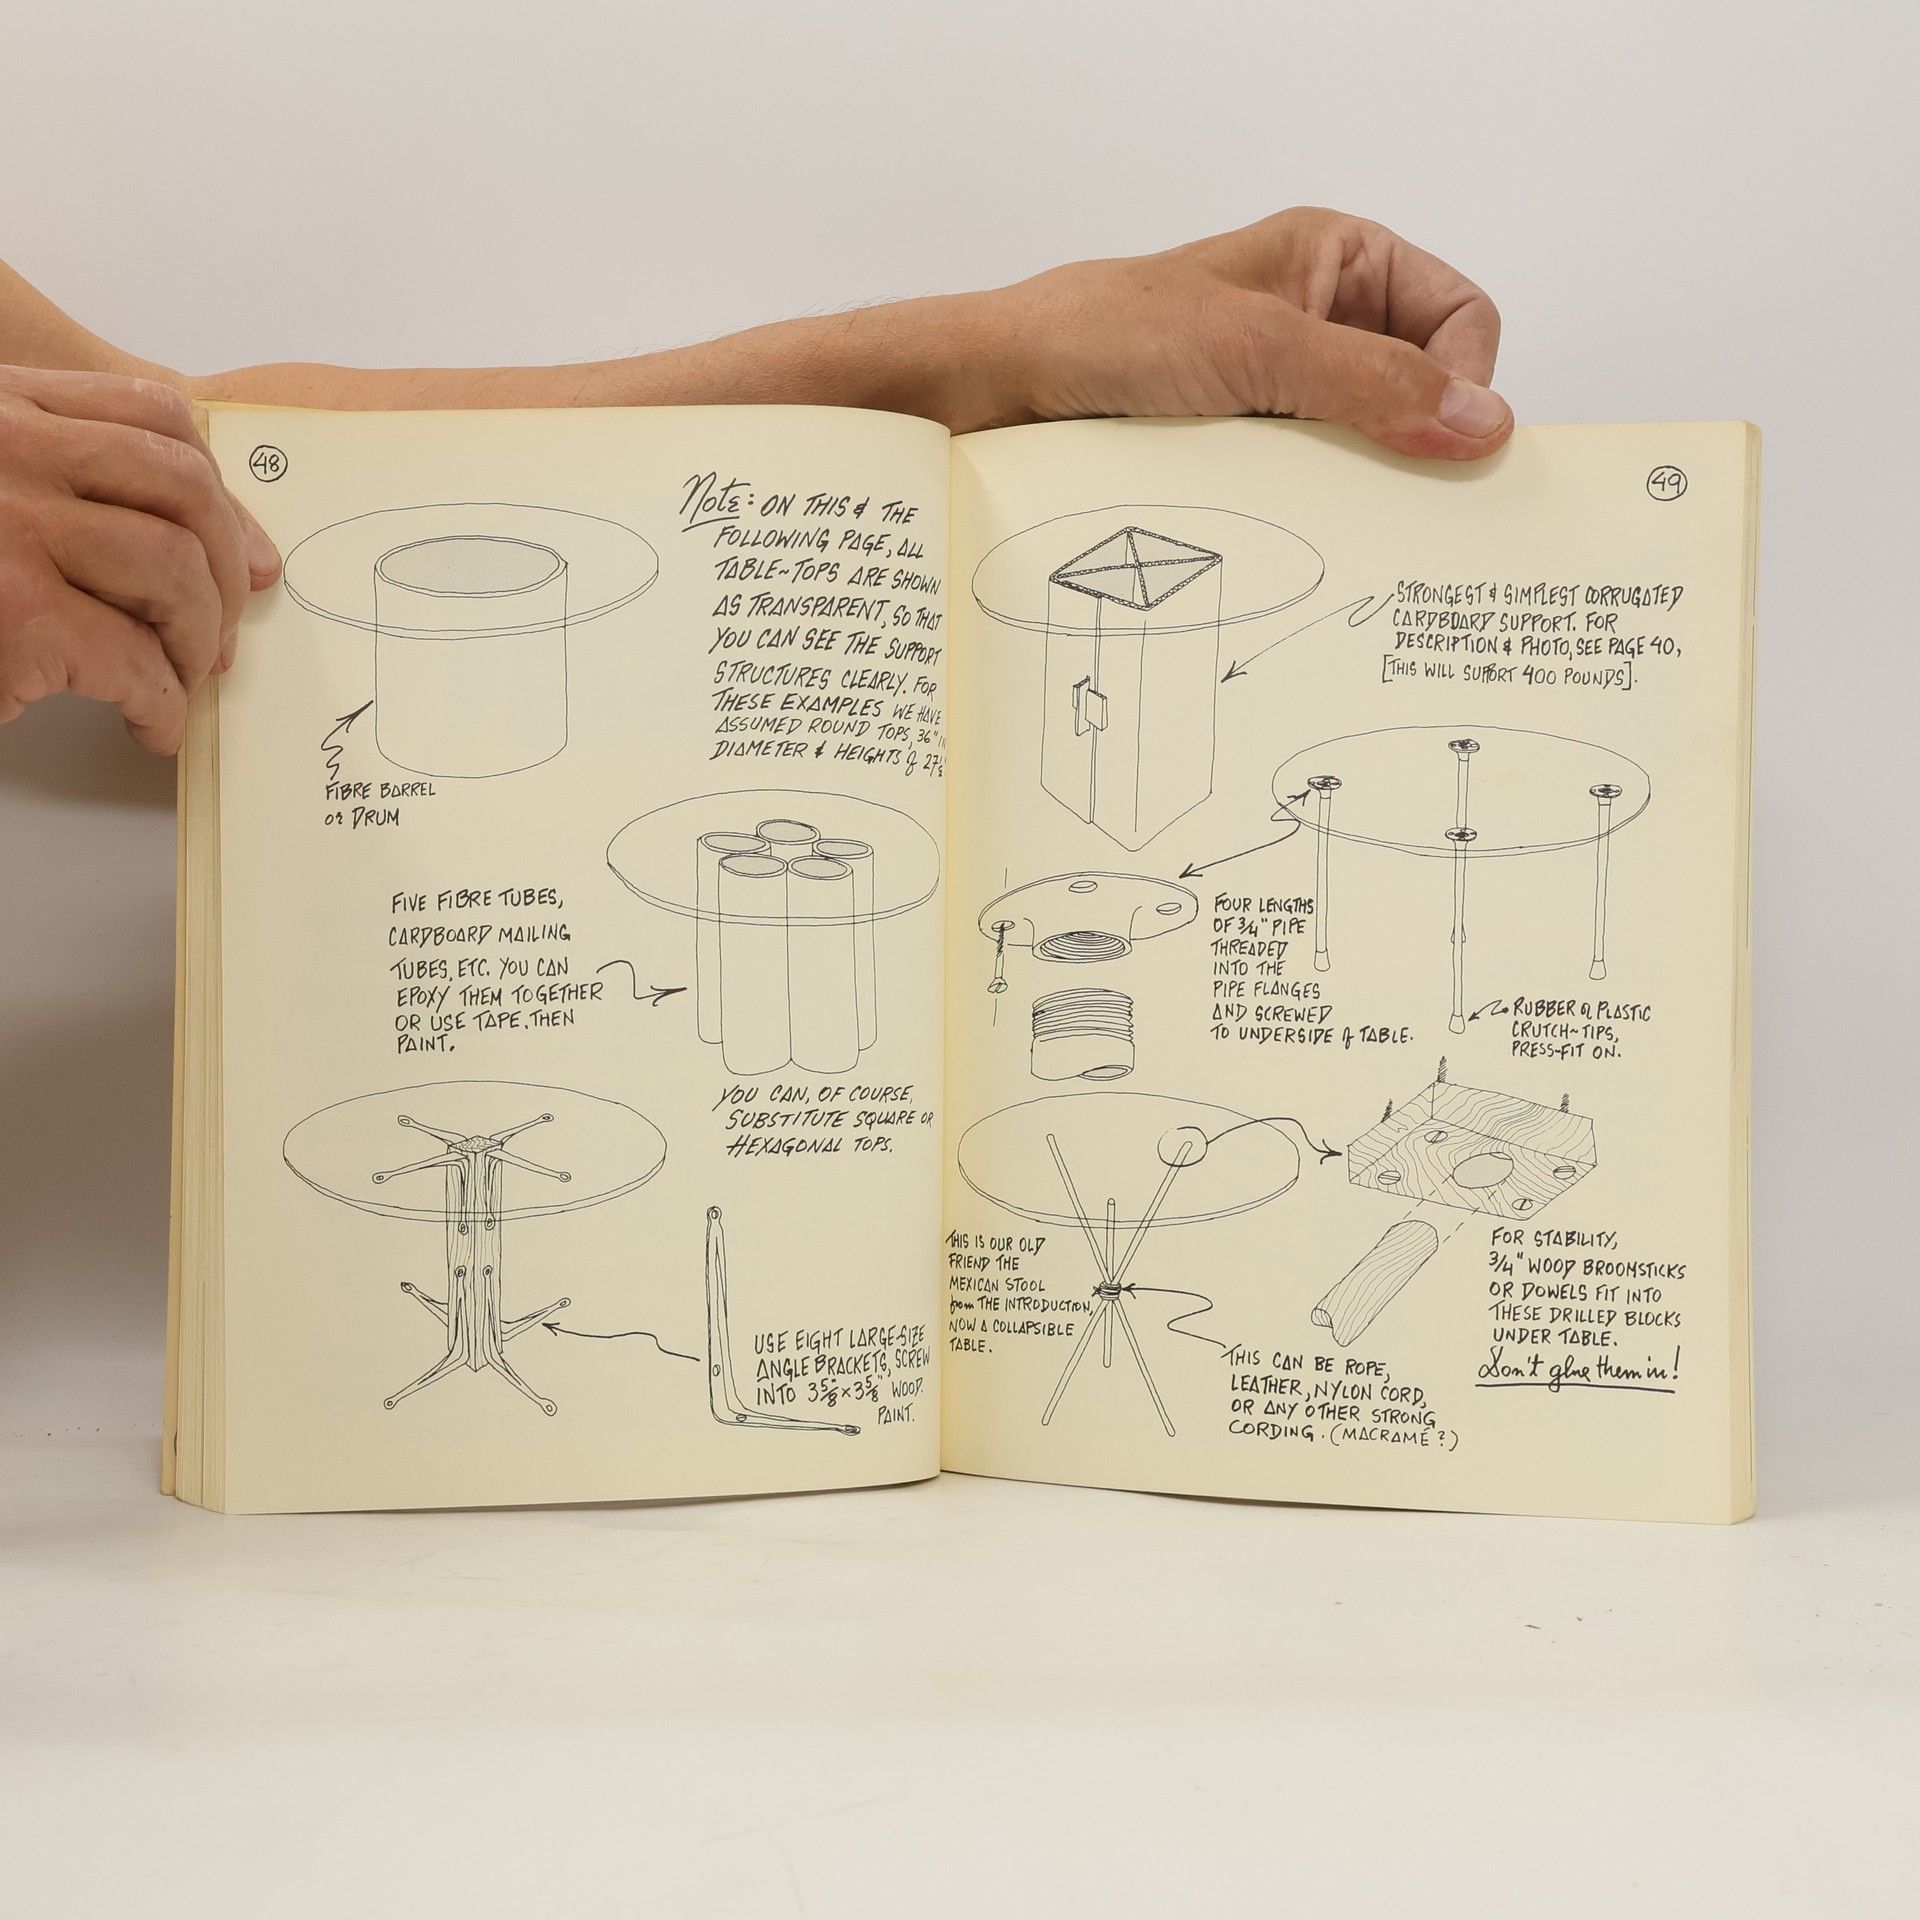 48
Note: ON THIS & THE
FOLLOWING PAGE, ALL
TABLE~TOPS ARE SHOWN
AS TRANSPARENT, SO THAT
YOU CAN SEE THE SUPPORT
STRUCTURES CLEARLY. FOR
THESE EXAMPLES WE HAVE
ASSUMED ROUND TOPS, 36"
DIAMETER & HEIGHTS of
FIBRE BARREL
or DRUM
FIVE FIBRE TUBES,
CARDBOARD MAILING
TUBES, ETC. YOU CAN
EPOXY THEM TOGETHER
OR USE TAPE, THEN
PAINT.
YOU CAN, OF COURSE,
SUBSTITUTE SQUARE OR
HEXAGONAL TOPS.
USE EIGHT LARGE-SIZE
ANGLE BRACKETS, SCREW
INTO 3 5/8" × 3 5/8" WOOD.
PAINT.
49
STRONGEST & SIMPLEST CORRUGATED
CARDBOARD SUPPORT. FOR
DESCRIPTION & PHOTO, SEE PAGE 40,
[THIS WILL SUPPORT 400 POUNDS].
FOUR LENGTHS
OF 3/4" PIPE
THREADED
INTO THE
PIPE FLANGES
AND SCREWED
TO UNDERSIDE of TABLE.
RUBBER or PLASTIC
CRUTCH~TIPS,
PRESS-FIT ON.
THIS IS OUR OLD
FRIEND THE
MEXICAN STOOL
from THE INTRODUCTION,
NOW A COLLAPSIBLE
TABLE.
THIS CAN BE ROPE,
LEATHER, NYLON CORD,
OR ANY OTHER STRONG
CORDING. (MACRAMÉ?)
FOR STABILITY,
3/4" WOOD BROOMSTICKS
OR DOWELS FIT INTO
THESE DRILLED BLOCKS
UNDER TABLE.
Don't glue them in!